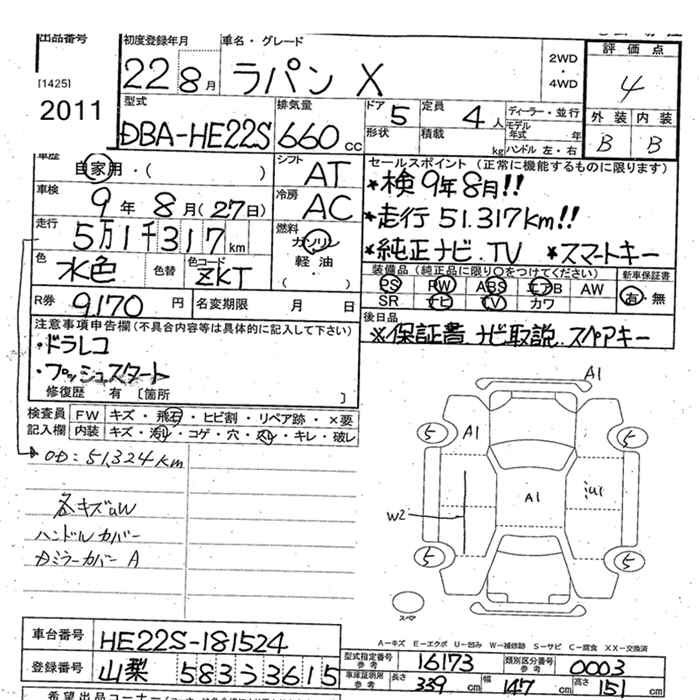 出品番号
[1425]
2011
初度登録年月 車名・グレード
22 8月 ラパン X
2WD
・
4WD
評価点
4
外装 内装
B B
型式 排気量 ドア 5 定員 4人 ディーラー・並行
DBA-HE22S 660cc 形状 積載 kg モデル年式 年
ハンドル 左・右
車歴 自家用・( ) シフト AT
車検 9年 8月(27日) 冷房 AC
走行 5万1千317km 燃料 ガソリン
軽油
・( )
色 水色 色替 色コード ZKT
R券 9,170円 名変期限 月 日
セールスポイント(正常に機能するものに限ります)
*検9年8月!!
*走行51.317km!!
*純正ナビ.TV *スマートキー
装備品(純正品に限り○をつけてください) 新車保証書
PS PW ABS エアB AW 有・無
SR ナビ TV カワ
後日品
※保証書 ナビ取説.スペアキー
注意事項申告欄(不具合内容等は具体的に記入して下さい)
・ドラレコ
・プッシュスタート
修復歴 有 [箇所 ]
検査員 FW キズ・飛石・ヒビ割・リペア跡・×要
記入欄 内装 キズ・汚レ・コゲ・穴・スレ・キレ・破レ
OD=51,324km
各キズuW
ハンドルカバー
Dミラーカバー A
A1
5 A1 5
W2 A1 U1
5 5
スペア
A-キズ E-エクボ U-凹み W-補修跡 S-サビ C-腐食 XX-交換済
車台番号 HE22S-181524
登録番号 山梨 583う3615
型式指定番号 参考 16173 類別区分番号 参考 0003
車庫証明用 参考 長さ 339cm 幅 147cm 高さ 151cm
希望出品コーナー